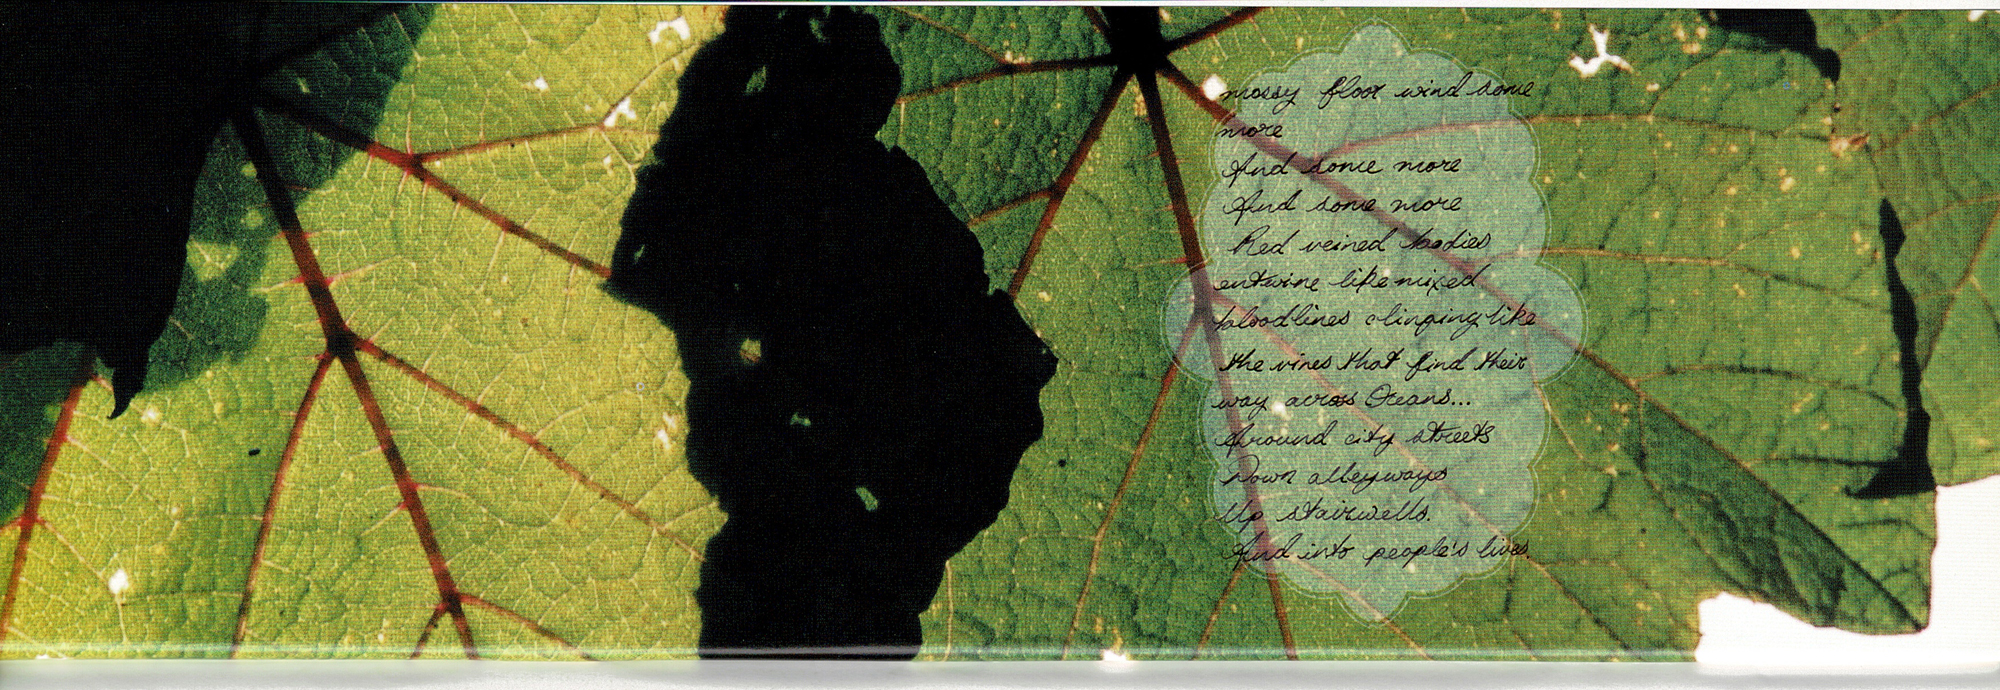 mossy floor wind some
more
And some more
And some more
Red veined bodies
entwine like mixed
bloodlines clinging like
the vines that find their
way across Oceans...
Around city streets
Down alleyways
Up stairwells.
And into people's lives.